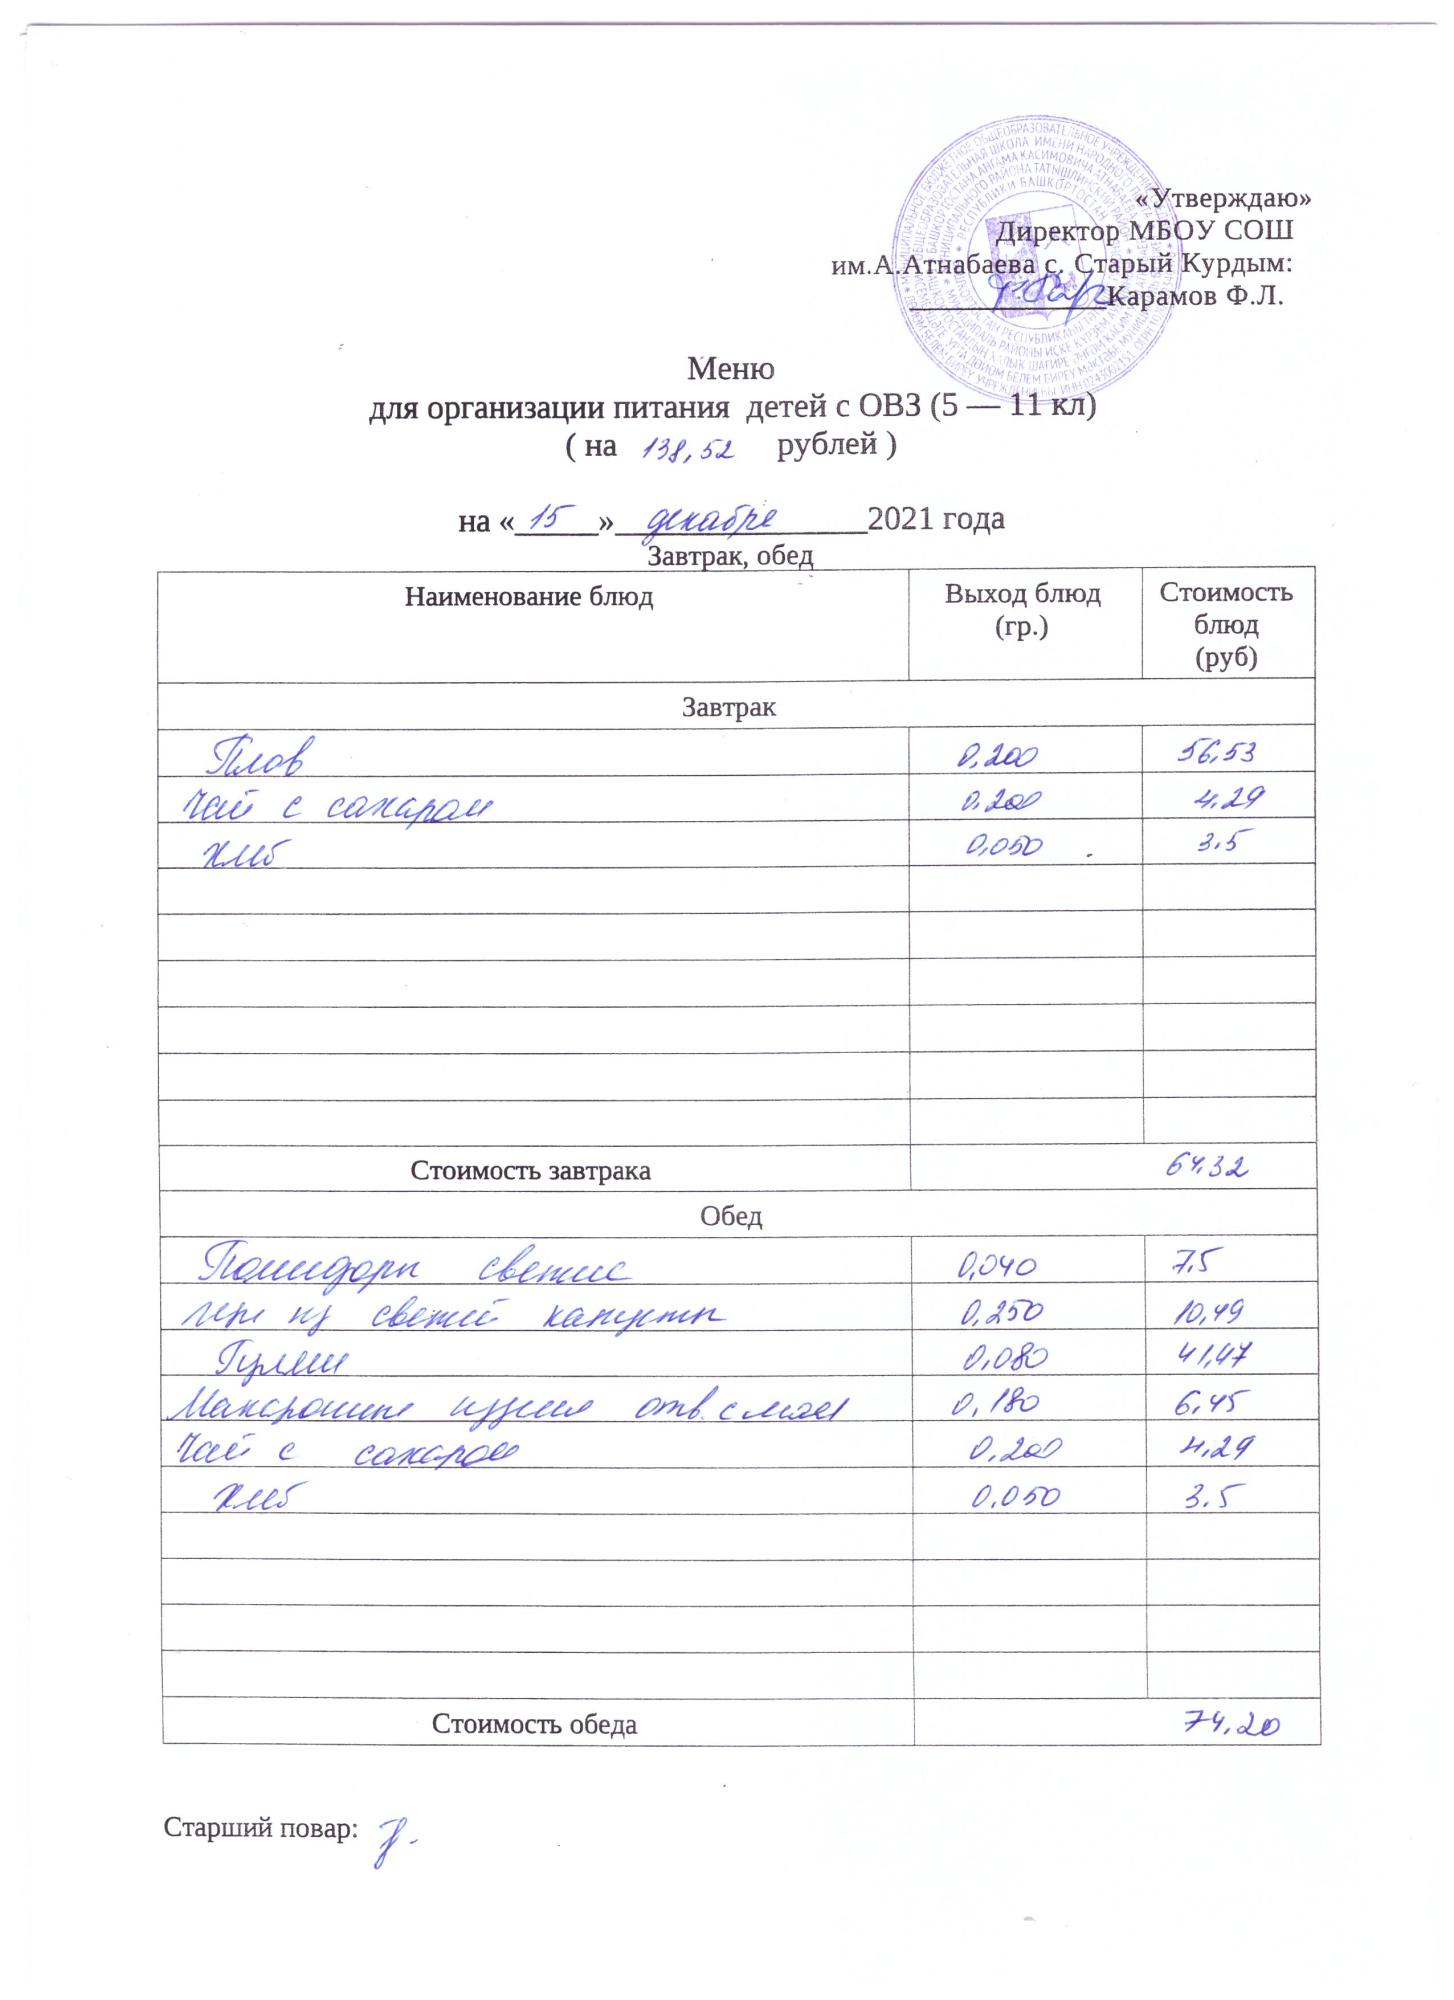 «Утверждаю»
Директор МБОУ СОШ
им.А.Атнабаева с. Старый Курдым:
Карамов Ф.Л.
Меню
для организации питания детей с ОВЗ (5 — 11 кл)
( на 138,52 рублей )
на « 15 » декабря 2021 года
Завтрак, обед
Наименование блюд Выход блюд (гр.) Стоимость блюд (руб)
Завтрак
Плов 0,200 56,53
Чай с сахаром 0,200 4,29
Хлеб 0,050 3,5
Стоимость завтрака 64,32
Обед
Помидоры свежие 0,040 7,5
из свежей капусты 0,250 10,49
Гуляш 0,080 41,47
Макаронные изделия отв. с маслом 0,180 6,45
Чай с сахаром 0,200 4,29
Хлеб 0,050 3.5
Стоимость обеда 74,20
Старший повар: